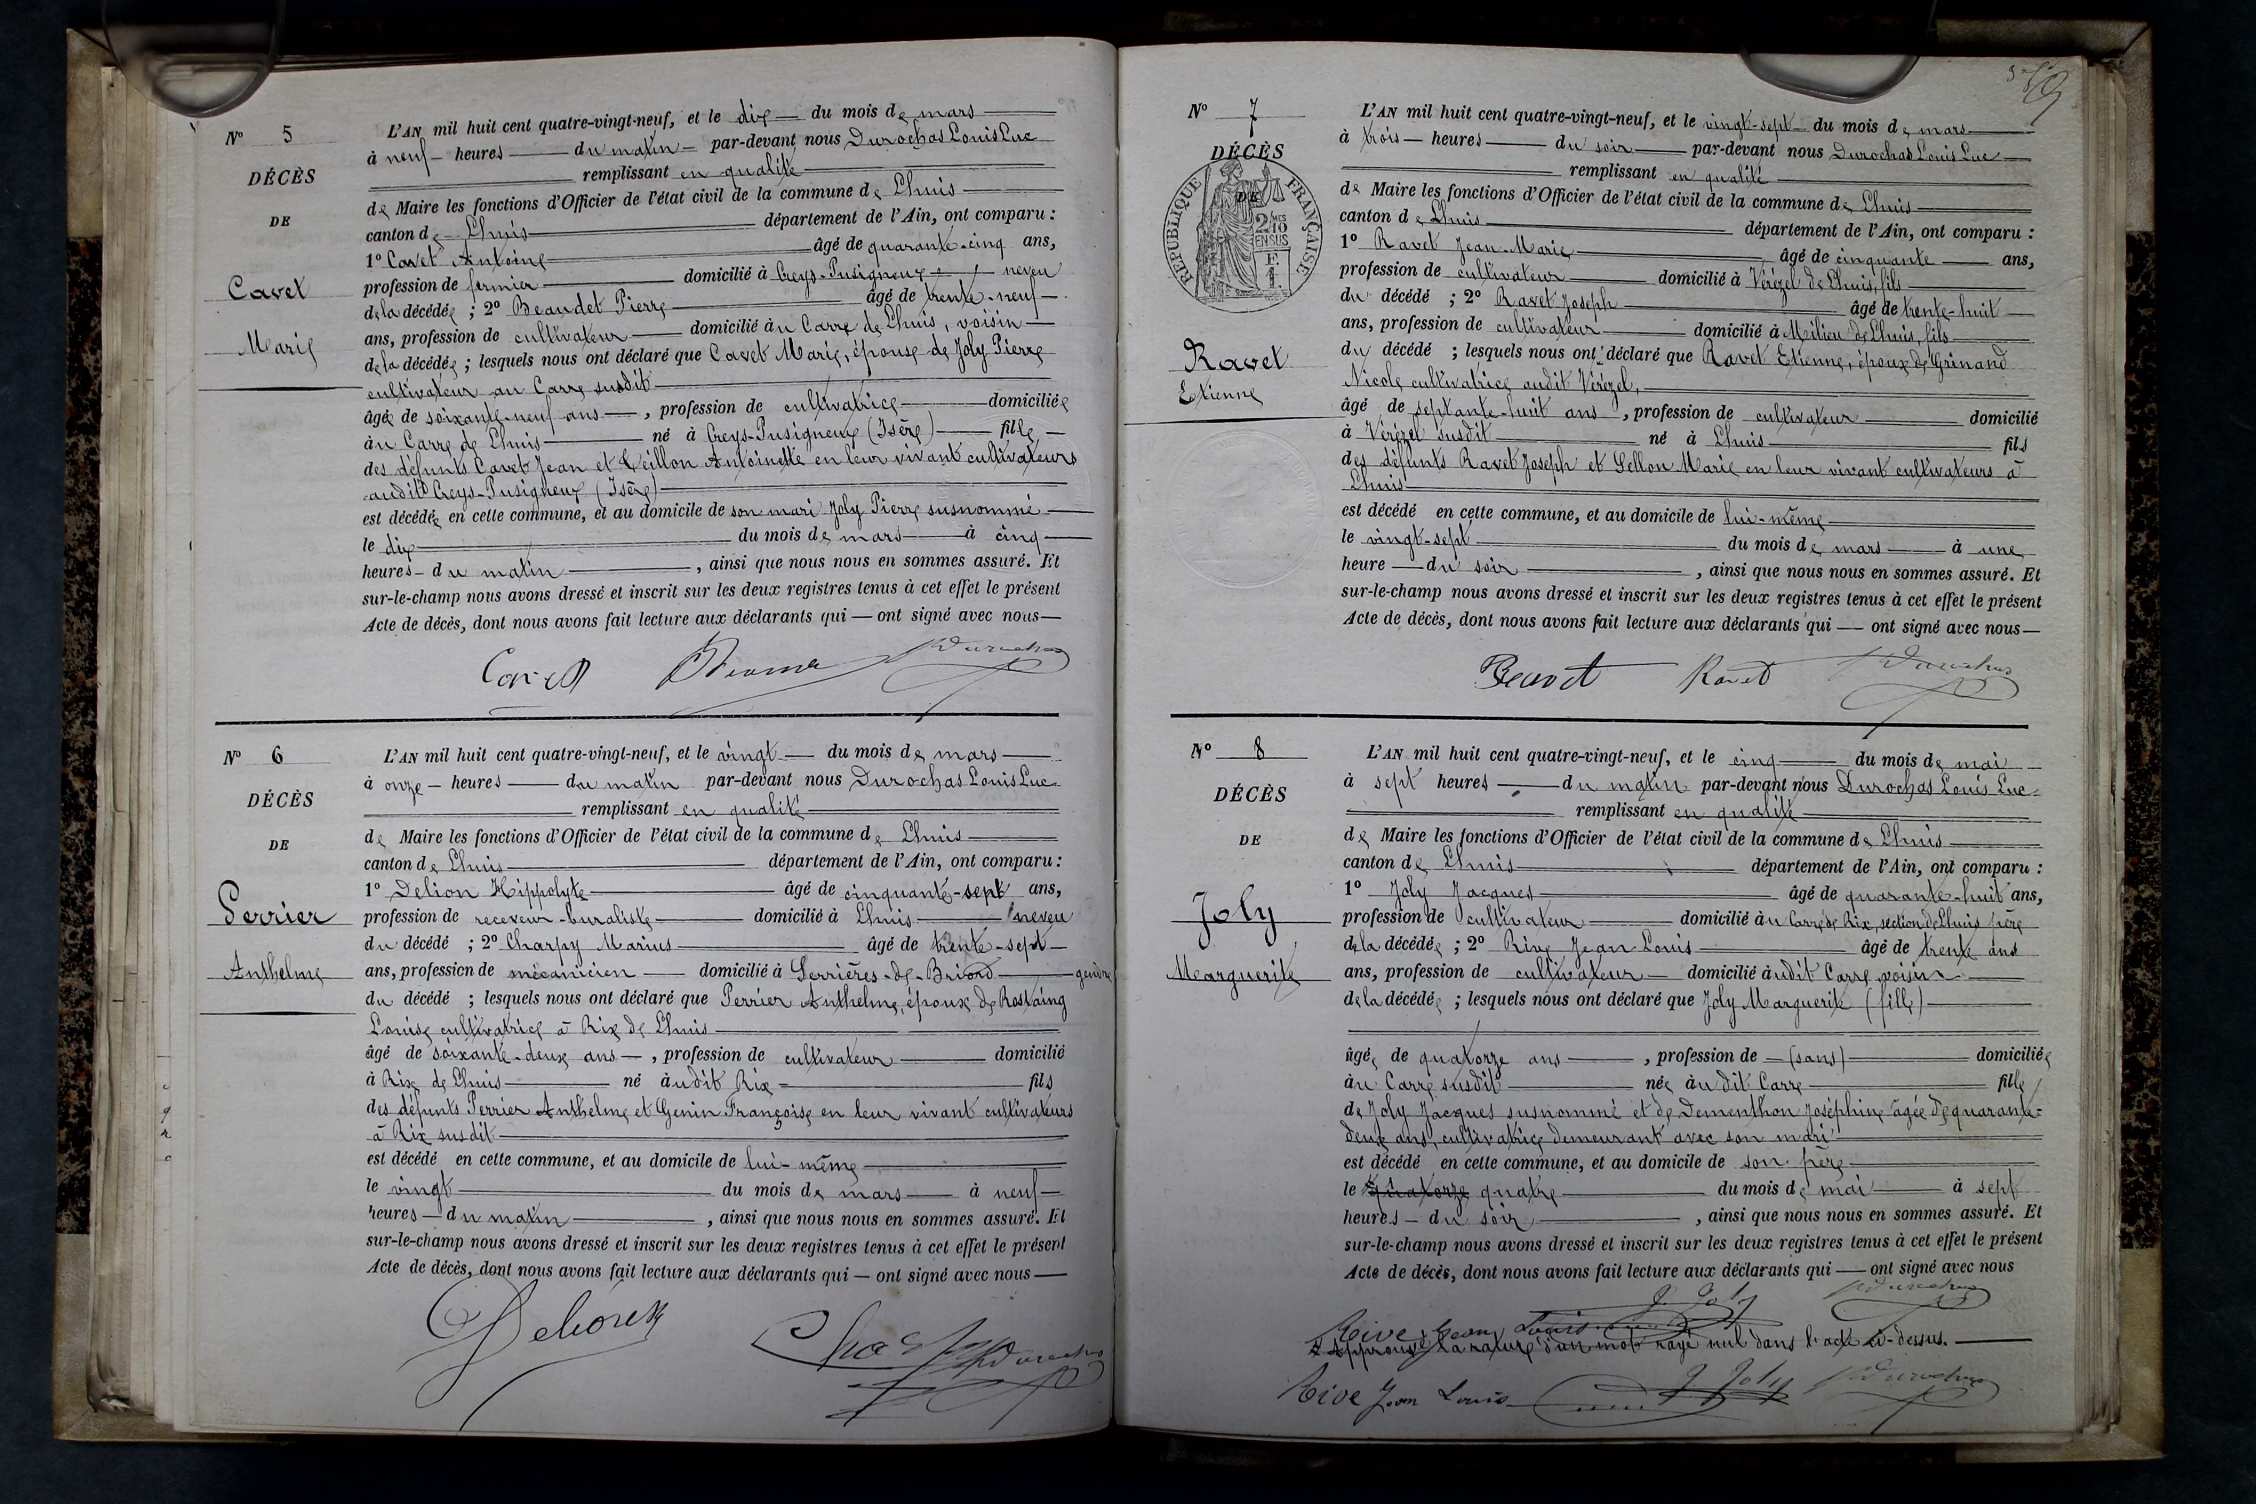 N° 5
DÉCÈS
DE
Cavet
Marie
L'AN mil huit cent quatre-vingt-neuf, et le dix du mois de mars
à neuf heures du matin par-devant nous Durochas Louis Luc
remplissant en qualité
de Maire les fonctions d'Officier de l'état civil de la commune de Lhuis
canton de Lhuis département de l'Ain, ont comparu :
1° Cavet Antoine âgé de quarante-cinq ans,
profession de fermier domicilié à Creys-Pusigneux neveu
de la décédée ; 2° Beaudet Pierre âgé de trente-neuf
ans, profession de cultivateur domicilié au Carre de Lhuis, voisin
de la décédée ; lesquels nous ont déclaré que Cavet Marie, épouse de Joly Pierre
cultivateur au Carre susdit
âgée de soixante-neuf ans, profession de cultivatrice domiciliée
au Carre de Lhuis né à Creys-Pusigneux (Isère) fille
des défunts Cavet Jean et Antoinette en leur vivant cultivateurs
audit Creys-Pusigneux (Isère)
est décédée en cette commune, et au domicile de son mari Joly Pierre susnommé
le dix du mois de mars à cinq
heures du matin, ainsi que nous nous en sommes assuré. Et
sur-le-champ nous avons dressé et inscrit sur les deux registres tenus à cet effet le présent
Acte de décès, dont nous avons fait lecture aux déclarants qui — ont signé avec nous —
Cavet Durochas
N° 6
DÉCÈS
DE
Perrier
Anthelme
L'AN mil huit cent quatre-vingt-neuf, et le vingt du mois de mars
à onze heures du matin par-devant nous Durochas Louis Luc
remplissant en qualité
de Maire les fonctions d'Officier de l'état civil de la commune de Lhuis
canton de Lhuis département de l'Ain, ont comparu :
1° Delion Hippolyte âgé de cinquante-sept ans,
profession de receveur-buraliste domicilié à Lhuis neveu
du décédé ; 2° Charpy Marius âgé de trente-sept
ans, profession de mécanicien domicilié à Serrières-de-Briord gendre
du décédé ; lesquels nous ont déclaré que Perrier Anthelme, époux de Rostaing
Louise cultivatrice à Rix de Lhuis
âgé de soixante-deux ans, profession de cultivateur domicilié
à Rix de Lhuis né audit Rix fils
des défunts Perrier Anthelme et Genin Françoise en leur vivant cultivateurs
à Rix susdit
est décédé en cette commune, et au domicile de lui-même
le vingt du mois de mars à neuf
heures du matin, ainsi que nous nous en sommes assuré. Et
sur-le-champ nous avons dressé et inscrit sur les deux registres tenus à cet effet le présent
Acte de décès, dont nous avons fait lecture aux déclarants qui — ont signé avec nous —
Durochas
N° 7
DÉCÈS
DE
RÉPUBLIQUE FRANÇAISE
2/10 EN SUS
Ravet
Etienne
L'AN mil huit cent quatre-vingt-neuf, et le vingt-sept du mois de mars
à trois heures du soir par-devant nous Durochas Louis Luc
remplissant en qualité
de Maire les fonctions d'Officier de l'état civil de la commune de Lhuis
canton de Lhuis département de l'Ain, ont comparu :
1° Ravet Jean-Marie âgé de cinquante ans,
profession de cultivateur domicilié à Vérézel de Lhuis, fils
du décédé ; 2° Ravet Joseph âgé de trente-huit
ans, profession de cultivateur domicilié à Milieu de Lhuis, fils
du décédé ; lesquels nous ont déclaré que Ravet Etienne, époux de Grinand
Nicole cultivatrice audit Vérézel,
âgé de septante-huit ans, profession de cultivateur domicilié
à Vérézel susdit né à Lhuis fils
des défunts Ravet Joseph et Sellon Marie en leur vivant cultivateurs à
Lhuis
est décédé en cette commune, et au domicile de lui-même
le vingt-sept du mois de mars à une
heure du soir, ainsi que nous nous en sommes assuré. Et
sur-le-champ nous avons dressé et inscrit sur les deux registres tenus à cet effet le présent
Acte de décès, dont nous avons fait lecture aux déclarants qui — ont signé avec nous —
Ravet Durochas
N° 8
DÉCÈS
DE
Joly
Marguerite
L'AN mil huit cent quatre-vingt-neuf, et le cinq du mois de mai
à sept heures du matin par-devant nous Durochas Louis Luc
remplissant en qualité
de Maire les fonctions d'Officier de l'état civil de la commune de Lhuis
canton de Lhuis département de l'Ain, ont comparu :
1° Joly Jacques âgé de quarante-huit ans,
profession de cultivateur domicilié au Carre de Rix, section de Lhuis père
de la décédée ; 2° Rive Jean-Louis âgé de trente ans
ans, profession de cultivateur domicilié audit Carre, voisin
de la décédée ; lesquels nous ont déclaré que Joly Marguerite (fille)
âgée de quatorze ans, profession de (sans) domiciliée
au Carre susdit née audit Carre fille
de Joly Jacques susnommé et de Dementhon Joséphine âgée de quarante-
deux ans, cultivatrice demeurant avec son mari
est décédé en cette commune, et au domicile de son père
le quatorze quatre du mois de mai à sept
heures du soir, ainsi que nous nous en sommes assuré. Et
sur-le-champ nous avons dressé et inscrit sur les deux registres tenus à cet effet le présent
Acte de décès, dont nous avons fait lecture aux déclarants qui — ont signé avec nous
Rive Jean Louis J Joly Durochas
Approuvé la rature d'un mot rayé nul dans l'acte ci-dessus.
Rive Jean Louis J Joly Durochas